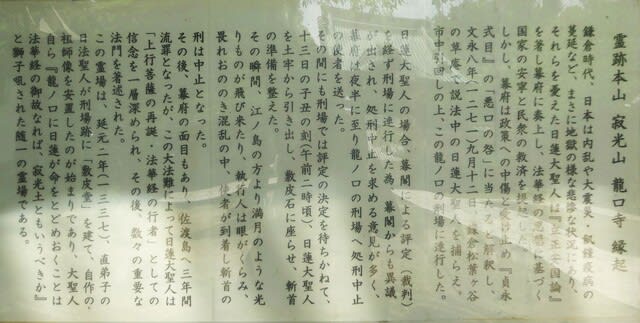 霊跡本山 寂光山 龍口寺 縁起
鎌倉時代、日本は内乱や大震災・飢饉疫病の
蔓延など、まさに地獄の様な悲惨な状況にあり、
それらを憂えた日蓮大聖人は『立正安国論』
を著し幕府に奏上し、法華経の思想に基づく
国家の安寧と民衆の救済を提唱した。
しかし、幕府は政策への中傷と受け止め『貞永
式目』の「悪口の咎」に当たると解釈し、
文永八年(一二七一)九月十二日、鎌倉松葉ヶ谷
の草庵で説法中の日蓮大聖人を捕らえ、
市中引回しの上、この龍ノ口の刑場に連行した。
日蓮大聖人の場合、幕閣による評定(裁判)
を経ず刑場に連行した為、幕閣からも異議
が出され、処刑中止を求める意見が多く、
幕府は夜半に至り龍ノ口の刑場へ処刑中止
の使者を送った。
その間にも刑場では評定の決定を待ちかねて、
十三日の子丑の刻(午前二時頃)、日蓮大聖人
を土牢から引き出し、敷皮石に座らせ、斬首
の準備を整えた。
その瞬間、江ノ島の方より満月のような光
りものが飛び来たり、執行人は眼がくらみ、
畏れおののき混乱の中、使者が到着し斬首の
刑は中止となった。
その後、幕府の面目もあり、佐渡島へ三年間
流罪となったが、この大法難によって日蓮大聖人は
「上行菩薩の再誕・法華経の行者」としての
信念を一層深められ、その後、数々の重要な
法門を著述された。
この霊場は、延元二年(一三三七)、直弟子の
日法聖人が刑場跡に「敷皮堂」を建て、自作の
祖師像を安置したのが始まりであり、大聖人
自ら『龍ノ口に日蓮が命をとどめおくことは
法華経の御故なれば、寂光土ともいうべきか』
と獅子吼された随一の霊場である。